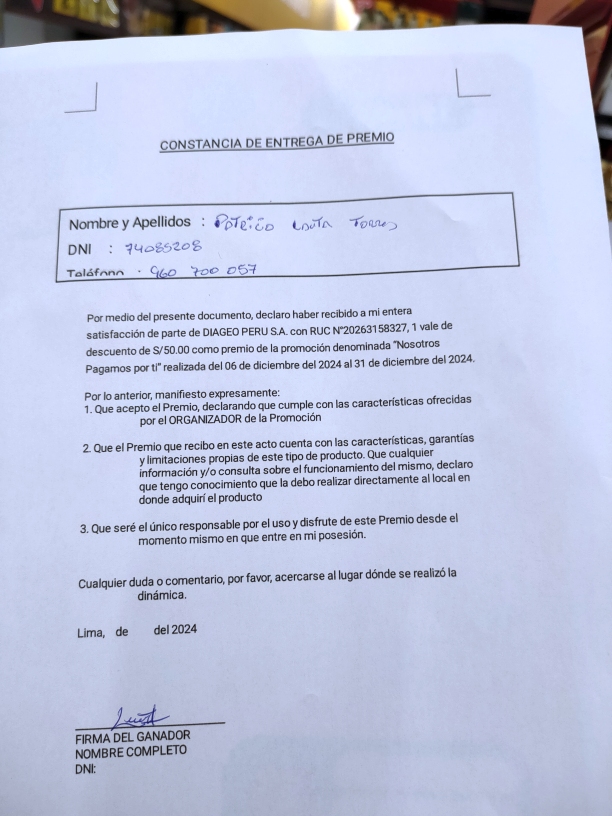 CONSTANCIA DE ENTREGA DE PREMIO
Nombre y Apellidos : Torres
DNI : 74085208
Teléfono : 960 700 057
Por medio del presente documento, declaro haber recibido a mi entera
satisfacción de parte de DIAGEO PERU S.A. con RUC N°20263158327, 1 vale de
descuento de S/50.00 como premio de la promoción denominada "Nosotros
Pagamos por ti" realizada del 06 de diciembre del 2024 al 31 de diciembre del 2024.
Por lo anterior, manifiesto expresamente:
1. Que acepto el Premio, declarando que cumple con las características ofrecidas
por el ORGANIZADOR de la Promoción
2. Que el Premio que recibo en este acto cuenta con las características, garantías
y limitaciones propias de este tipo de producto. Que cualquier
información y/o consulta sobre el funcionamiento del mismo, declaro
que tengo conocimiento que la debo realizar directamente al local en
donde adquirí el producto
3. Que seré el único responsable por el uso y disfrute de este Premio desde el
momento mismo en que entre en mi posesión.
Cualquier duda o comentario, por favor, acercarse al lugar dónde se realizó la
dinámica.
Lima, de del 2024
FIRMA DEL GANADOR
NOMBRE COMPLETO
DNI: